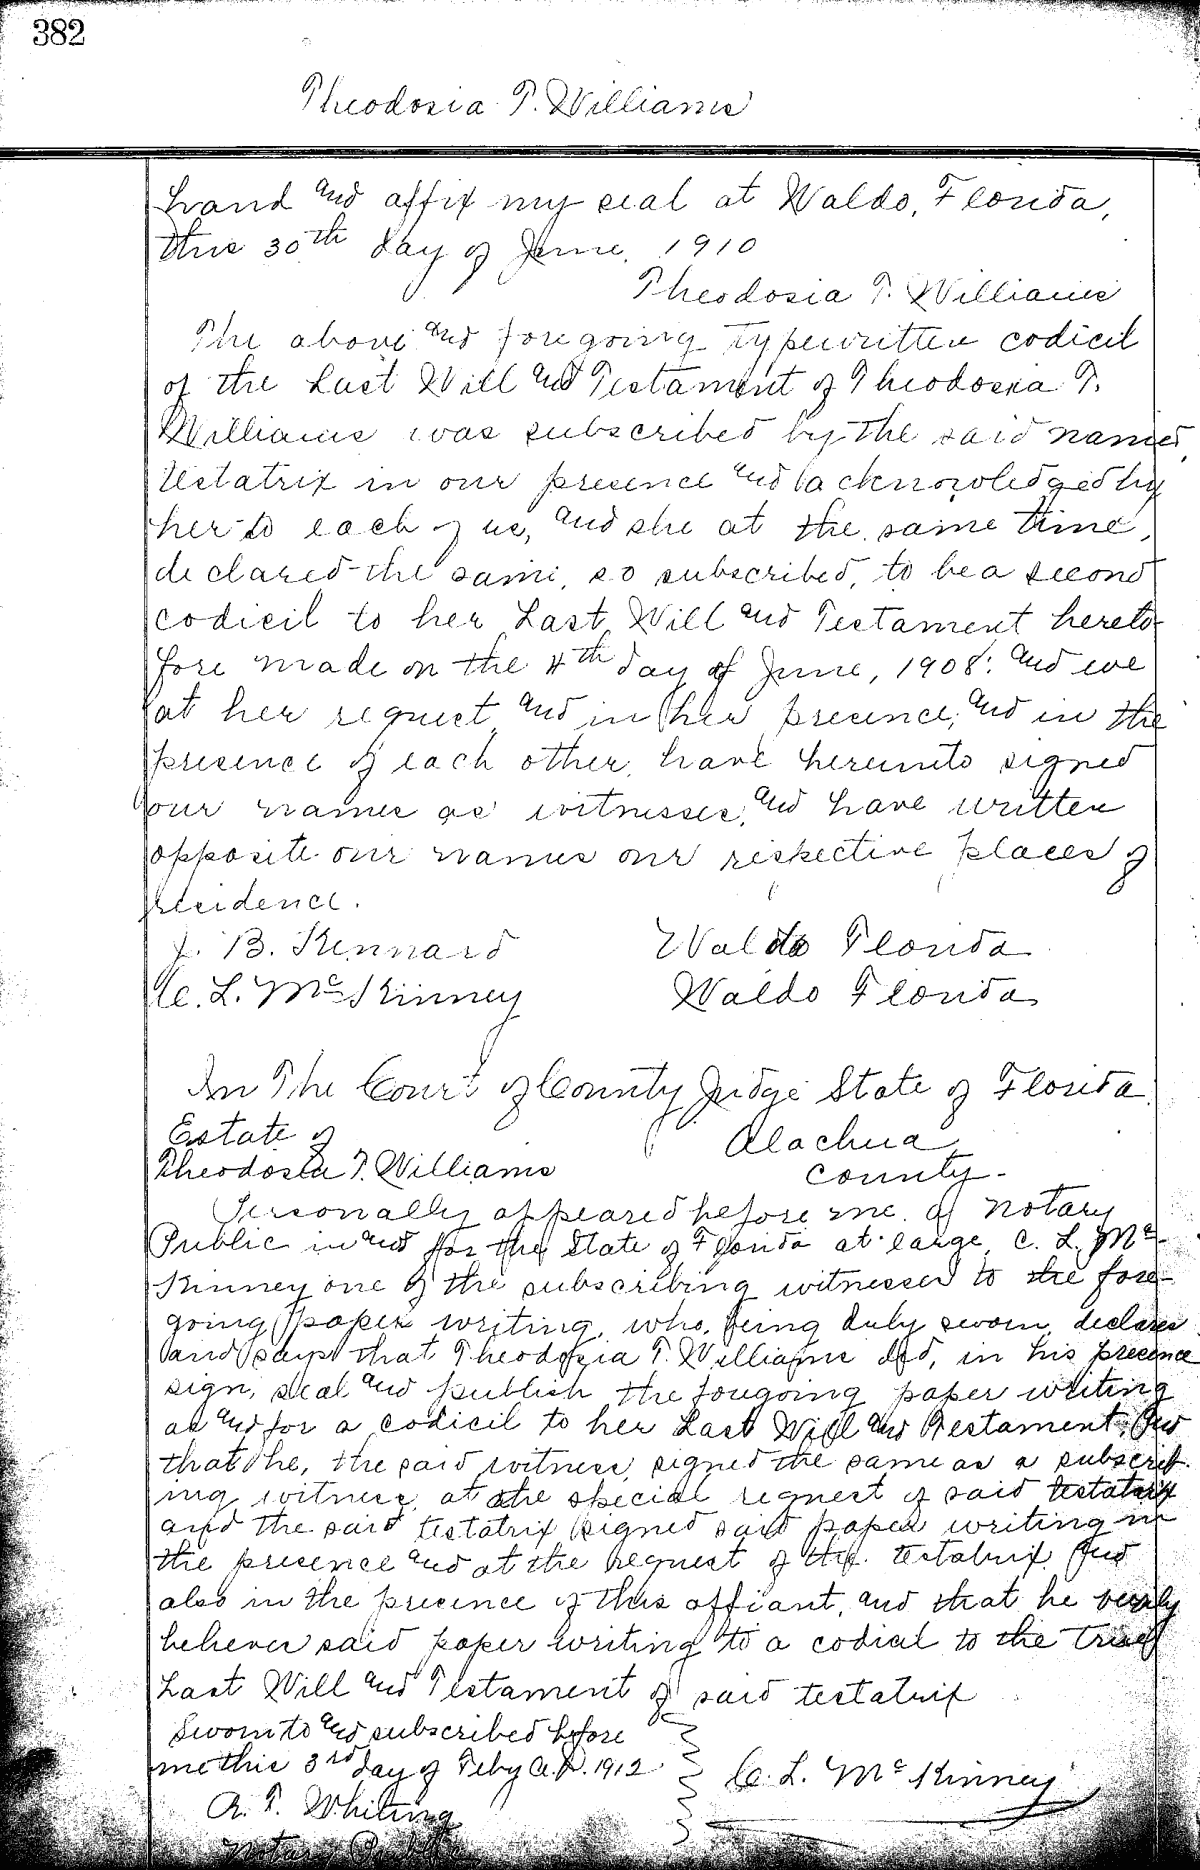 382
Theodosia T. Williams
hand and affix my seal at Waldo, Florida,
this 30th day of June, 1910
Theodosia T. Williams
The above and foregoing typewritten codicil
of the Last Will and Testament of Theodosia T.
Williams was subscribed by the said named
testatrix in our presence and acknowledged by
her to each of us, and she at the same time,
declared the same, so subscribed, to be a second
codicil to her Last Will and Testament hereto-
fore made on the 4th day of June, 1908: and we
at her request and in her presence, and in the
presence of each other, have hereunto signed
our names as witnesses, and have written
opposite our names our respective places of
residence.
J. B. Kennard Waldo Florida
C. L. McKinney Waldo Florida
In The Court of County Judge State of Florida.
Estate of Alachua
Theodosia T. Williams County-
Personally appeared before me a Notary
Public in and for the State of Florida at large, C. L. Mc-
Kinney one of the subscribing witnesses to the fore-
going paper writing, who, being duly sworn, declares
and says that Theodosia T. Williams did, in his presence
sign, seal and publish the foregoing paper writing
as and for a codicil to her Last Will and Testament, and
that he, the said witness, signed the same as a subscrib-
ing witness, at the special request of said testatrix
and the said testatrix signed said paper writing in
the presence and at the request of the testatrix and
also in the presence of this affiant, and that he verily
believes said paper writing to a codicil to the true
Last Will and Testament of said testatrix
Sworn to and subscribed before
me this 3rd day of Feby A.D. 1912 C. L. McKinney
A. T. Whiting
Notary Public